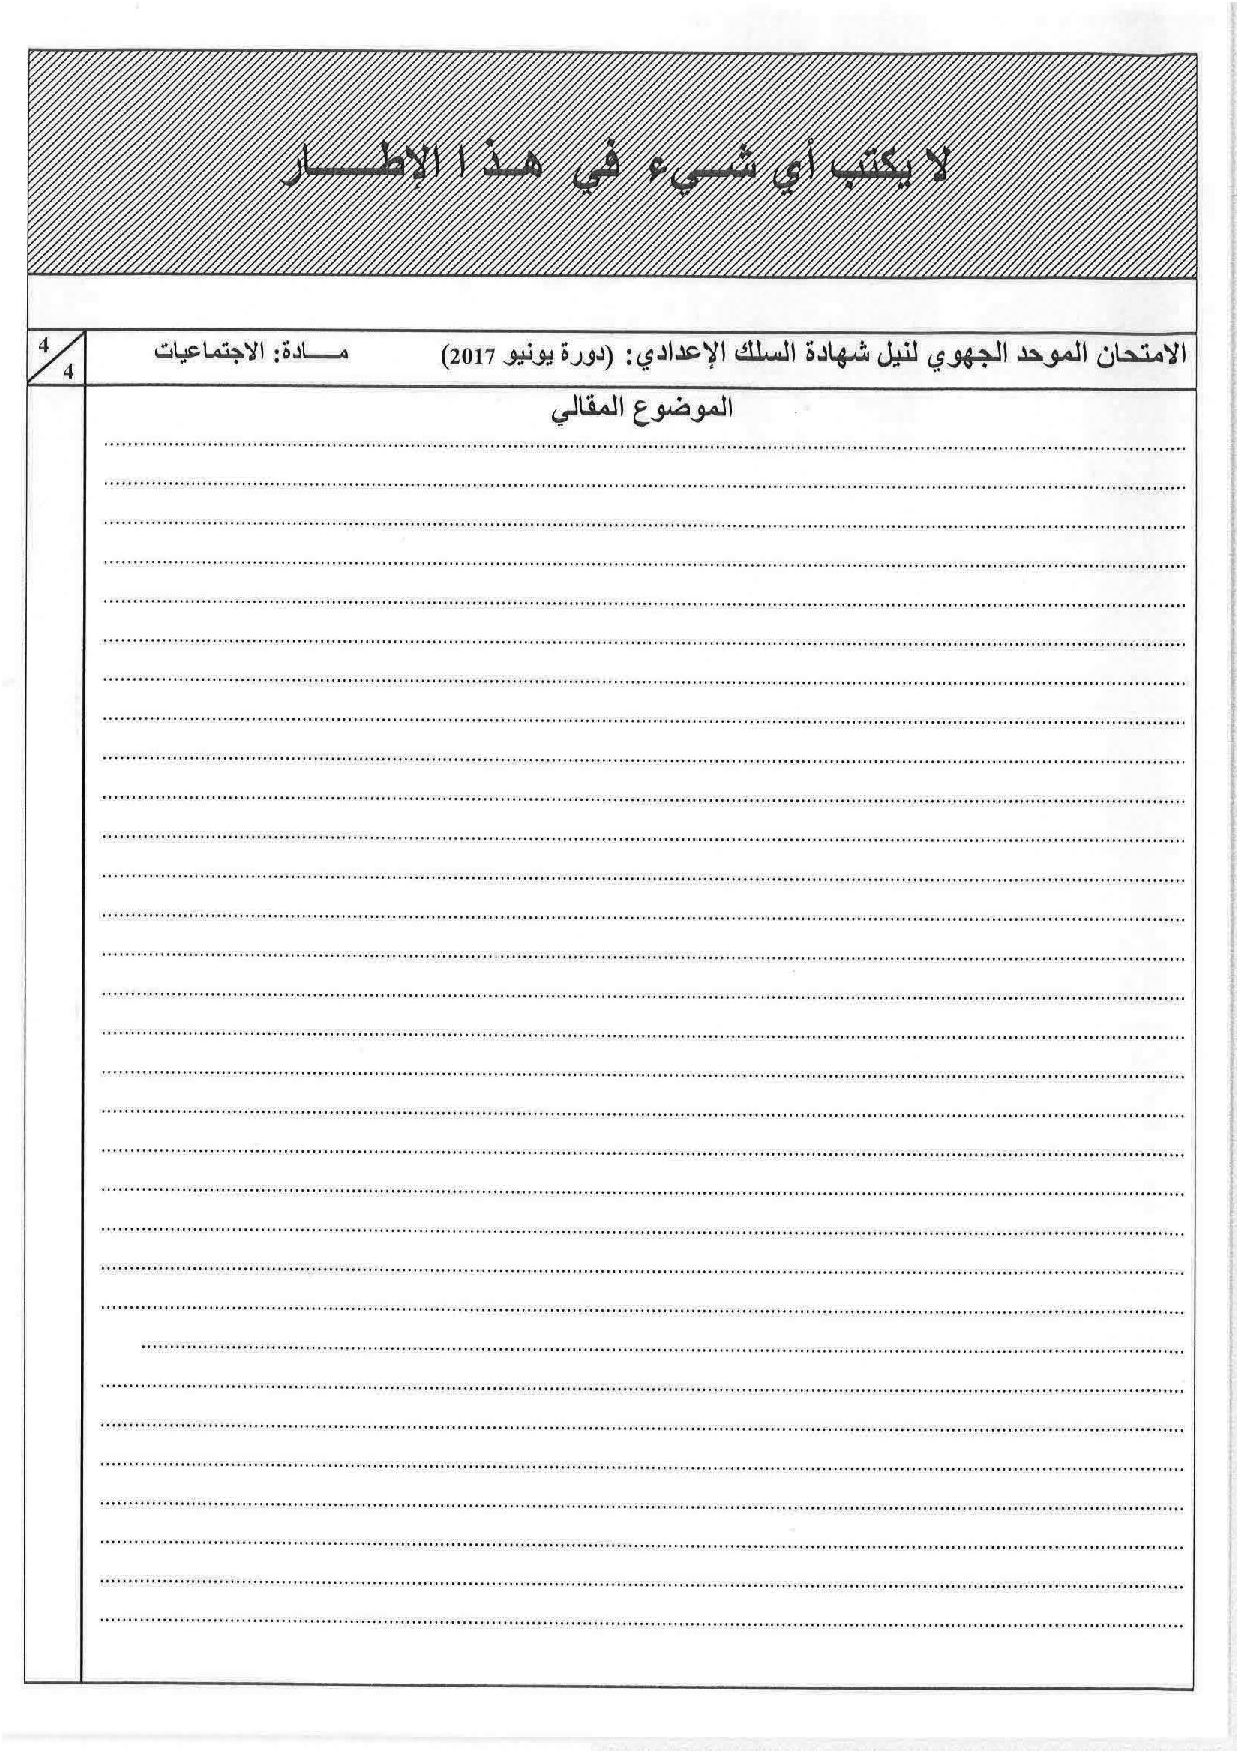 لا يكتب أي شيء في هذا الإطار
الامتحان الموحد الجهوي لنيل شهادة السلك الإعدادي: (دورة يونيو 2017) مادة: الاجتماعيات 4/4
الموضوع المقالي